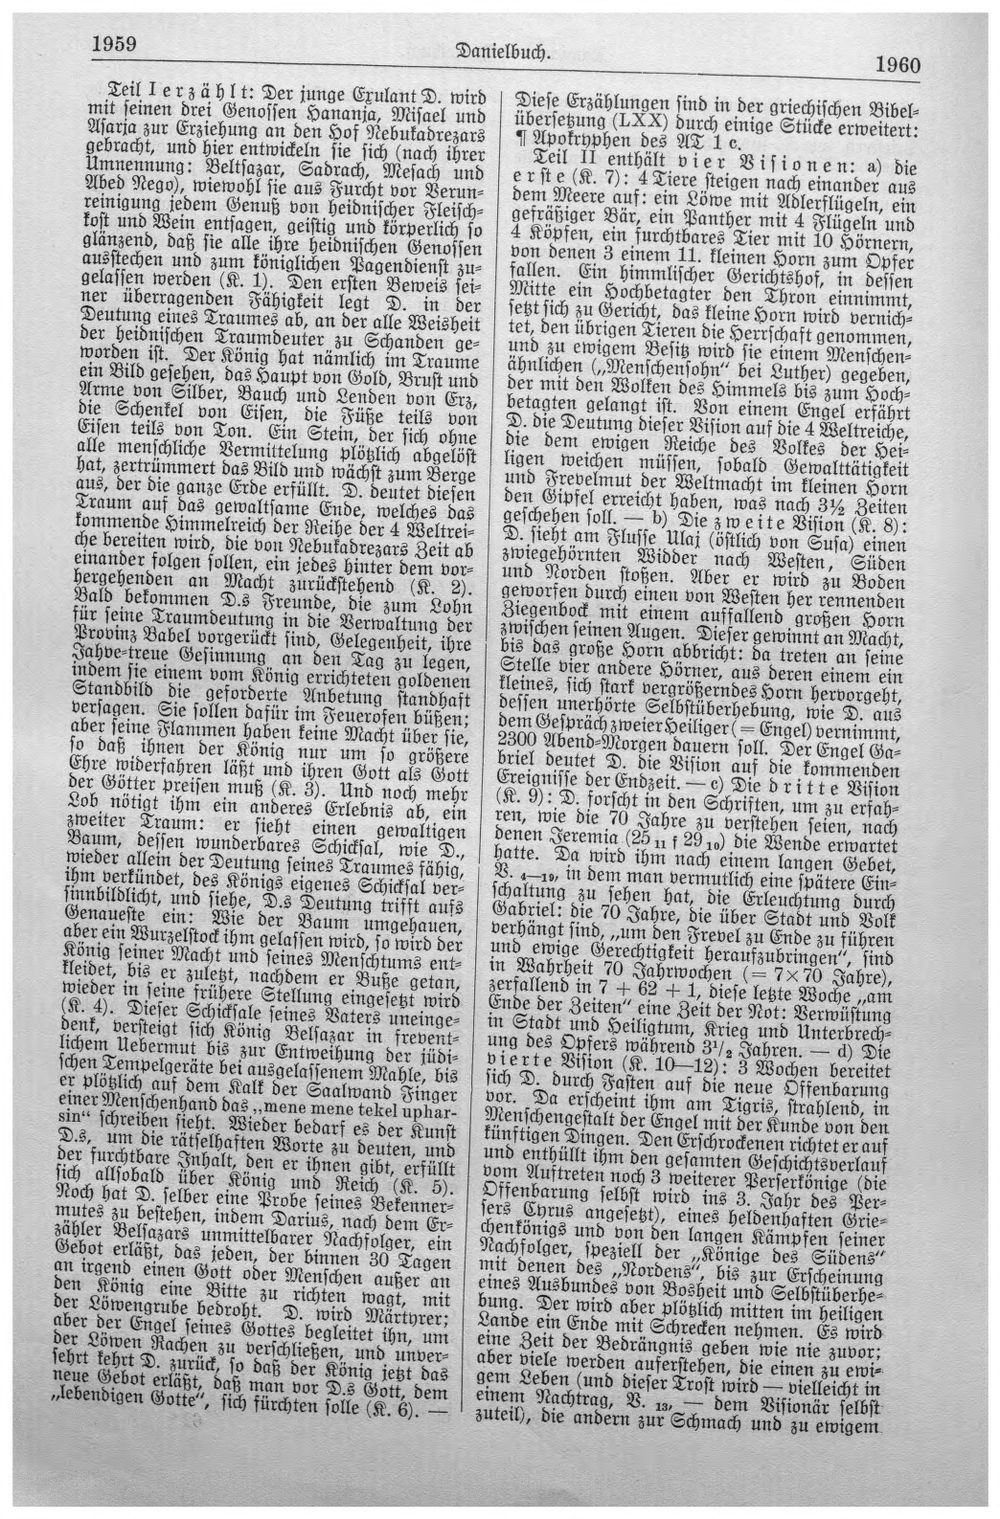 1959
Danielbuch.
1960
Teil I erzählt: Der junge Exulant D. wird
mit seinen drei Genossen Hananja, Misael und
Asarja zur Erziehung an den Hof Nebukadrezars
gebracht, und hier entwickeln sie sich (nach ihrer
Umnennung: Beltsazar, Sadrach, Mesach und
Abed Nego), wiewohl sie aus Furcht vor Verun-
reinigung jedem Genuß von heidnischer Fleisch-
kost und Wein entsagen, geistig und körperlich so
glänzend, daß sie alle ihre heidnischen Genossen
ausstechen und zum königlichen Pagendienst zu-
gelassen werden (K. 1). Den ersten Beweis sei-
ner überragenden Fähigkeit legt D. in der
Deutung eines Traumes ab, an der alle Weisheit
der heidnischen Traumdeuter zu Schanden ge-
worden ist. Der König hat nämlich im Traume
ein Bild gesehen, das Haupt von Gold, Brust und
Arme von Silber, Bauch und Lenden von Erz,
die Schenkel von Eisen, die Füße teils von
Eisen teils von Ton. Ein Stein, der sich ohne
alle menschliche Vermittelung plötzlich abgelöst
hat, zertrümmert das Bild und wächst zum Berge
aus, der die ganze Erde erfüllt. D. deutet diesen
Traum auf das gewaltsame Ende, welches das
kommende Himmelreich der Reihe der 4 Weltrei-
che bereiten wird, die von Nebukadrezars Zeit ab
einander folgen sollen, ein jedes hinter dem vor-
hergehenden an Macht zurückstehend (K. 2).
Bald bekommen D.s Freunde, die zum Lohn
für seine Traumdeutung in die Verwaltung der
Provinz Babel vorgerückt sind, Gelegenheit, ihre
Jahve-treue Gesinnung an den Tag zu legen,
indem sie einem vom König errichteten goldenen
Standbild die geforderte Anbetung standhaft
versagen. Sie sollen dafür im Feuerofen büßen;
aber seine Flammen haben keine Macht über sie,
so daß ihnen der König nur um so größere
Ehre widerfahren läßt und ihren Gott als Gott
der Götter preisen muß (K. 3). Und noch mehr
Lob nötigt ihm ein anderes Erlebnis ab, ein
zweiter Traum: er sieht einen gewaltigen
Baum, dessen wunderbares Schicksal, wie D.,
wieder allein der Deutung seines Traumes fähig,
ihm verkündet, des Königs eigenes Schicksal ver-
sinnbildlicht, und siehe, D.s Deutung trifft aufs
Genaueste ein: Wie der Baum umgehauen,
aber ein Wurzelstock ihm gelassen wird, so wird der
König seiner Macht und seines Menschtums ent-
kleidet, bis er zuletzt, nachdem er Buße getan,
wieder in seine frühere Stellung eingesetzt wird
(K. 4). Dieser Schicksale seines Vaters uneinge-
denk, versteigt sich König Belsazar in frevent-
lichem Uebermut bis zur Entweihung der jüdi-
schen Tempelgeräte bei ausgelassenem Mahle, bis
er plötzlich auf dem Kalk der Saalwand Finger
einer Menschenhand das „mene mene tekel uphar-
sin“ schreiben sieht. Wieder bedarf es der Kunst
D.s, um die rätselhaften Worte zu deuten, und
der furchtbare Inhalt, den er ihnen gibt, erfüllt
sich allsobald über König und Reich (K. 5).
Noch hat D. selber eine Probe seines Bekenner-
mutes zu bestehen, indem Darius, nach dem Er-
zähler Belsazars unmittelbarer Nachfolger, ein
Gebot erläßt, das jeden, der binnen 30 Tagen
an irgend einen Gott oder Menschen außer an
den König eine Bitte zu richten wagt, mit
der Löwengrube bedroht. D. wird Märtyrer;
aber der Engel seines Gottes begleitet ihn, um
der Löwen Rachen zu verschließen, und unver-
sehrt kehrt D. zurück, so daß der König jetzt das
neue Gebot erläßt, daß man vor D.s Gott, dem
„lebendigen Gotte“, sich fürchten solle (K. 6). —
Diese Erzählungen sind in der griechischen Bibel-
übersetzung (LXX) durch einige Stücke erweitert:
¶ Apokryphen des AT 1 c.
Teil II enthält vier Visionen: a) die
erste (K. 7): 4 Tiere steigen nach einander aus
dem Meere auf: ein Löwe mit Adlerflügeln, ein
gefräßiger Bär, ein Panther mit 4 Flügeln und
4 Köpfen, ein furchtbares Tier mit 10 Hörnern,
von denen 3 einem 11. kleinen Horn zum Opfer
fallen. Ein himmlischer Gerichtshof, in dessen
Mitte ein Hochbetagter den Thron einnimmt,
setzt sich zu Gericht, das kleine Horn wird vernich-
tet, den übrigen Tieren die Herrschaft genommen,
und zu ewigem Besitz wird sie einem Menschen-
ähnlichen („Menschensohn“ bei Luther) gegeben,
der mit den Wolken des Himmels bis zum Hoch-
betagten gelangt ist. Von einem Engel erfährt
D. die Deutung dieser Vision auf die 4 Weltreiche,
die dem ewigen Reiche des Volkes der Hei-
ligen weichen müssen, sobald Gewalttätigkeit
und Frevelmut der Weltmacht im kleinen Horn
den Gipfel erreicht haben, was nach 3½ Zeiten
geschehen soll. — b) Die zweite Vision (K. 8):
D. sieht am Flusse Ulaj (östlich von Susa) einen
zwiegehörnten Widder nach Westen, Süden
und Norden stoßen. Aber er wird zu Boden
geworfen durch einen von Westen her rennenden
Ziegenbock mit einem auffallend großen Horn
zwischen seinen Augen. Dieser gewinnt an Macht,
bis das große Horn abbricht: da treten an seine
Stelle vier andere Hörner, aus deren einem ein
kleines, sich stark vergrößerndes Horn hervorgeht,
dessen unerhörte Selbstüberhebung, wie D. aus
dem Gespräch zweier Heiliger (= Engel) vernimmt,
2300 Abend-Morgen dauern soll. Der Engel Ga-
briel deutet D. die Vision auf die kommenden
Ereignisse der Endzeit. — c) Die dritte Vision
(K. 9): D. forscht in den Schriften, um zu erfah-
ren, wie die 70 Jahre zu verstehen seien, nach
denen Jeremia (25 11 f 29 10) die Wende erwartet
hatte. Da wird ihm nach einem langen Gebet,
V. 4—19, in dem man vermutlich eine spätere Ein-
schaltung zu sehen hat, die Erleuchtung durch
Gabriel: die 70 Jahre, die über Stadt und Volk
verhängt sind, „um den Frevel zu Ende zu führen
und ewige Gerechtigkeit heraufzubringen“, sind
in Wahrheit 70 Jahrwochen (= 7×70 Jahre),
zerfallend in 7 + 62 + 1, diese letzte Woche „am
Ende der Zeiten“ eine Zeit der Not: Verwüstung
in Stadt und Heiligtum, Krieg und Unterbrech-
ung des Opfers während 3½ Jahren. — d) Die
vierte Vision (K. 10—12): 3 Wochen bereitet
sich D. durch Fasten auf die neue Offenbarung
vor. Da erscheint ihm am Tigris, strahlend, in
Menschengestalt der Engel mit der Kunde von den
künftigen Dingen. Den Erschrockenen richtet er auf
und enthüllt ihm den gesamten Geschichtsverlauf
vom Auftreten noch 3 weiterer Perserkönige (die
Offenbarung selbst wird ins 3. Jahr des Per-
sers Cyrus angesetzt), eines heldenhaften Grie-
chenkönigs und von den langen Kämpfen seiner
Nachfolger, speziell der „Könige des Südens“
mit denen des „Nordens“, bis zur Erscheinung
eines Ausbundes von Bosheit und Selbstüberhe-
bung. Der wird aber plötzlich mitten im heiligen
Lande ein Ende mit Schrecken nehmen. Es wird
eine Zeit der Bedrängnis geben wie nie zuvor;
aber viele werden auferstehen, die einen zu ewi-
gem Leben (und dieser Trost wird — vielleicht in
einem Nachtrag, V. 13, — dem Visionär selbst
zuteil), die andern zur Schmach und zu ewigem